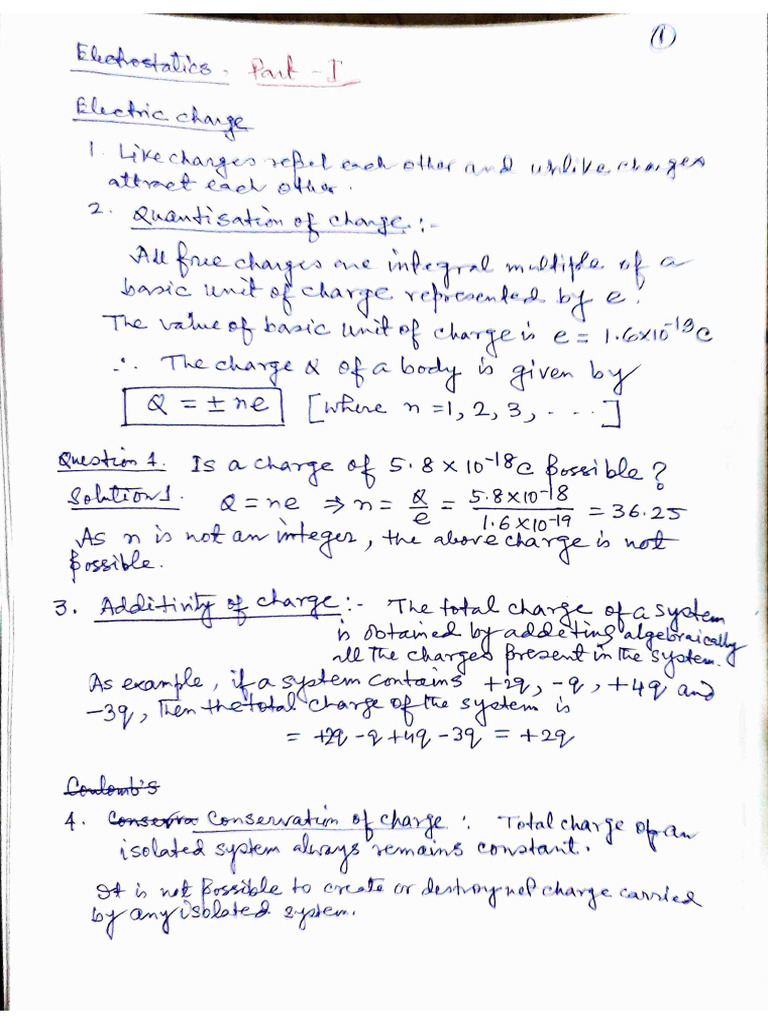 ①
Electrostatics. Part-I
Electric charge
1. Like charges repel each other and unlike charges
attract each other.
2. Quantisation of charge :-
All free charges are integral multiple of a
basic unit of charge represented by e.
The value of basic unit of charge is e = 1.6×10⁻¹⁹C
∴ The charge Q of a body is given by
Q = ± ne [where n = 1, 2, 3, ....]
Question 1. Is a charge of 5.8 × 10⁻¹⁸C possible?
Solution 1. Q = ne ⇒ n = Q/e = 5.8×10⁻¹⁸/1.6×10⁻¹⁹ = 36.25
As n is not an integer, the above charge is not
possible.
3. Additivity of charge :- The total charge of a system
is obtained by addeting algebraically
all the charges present in the system.
As example, if a system contains +2q, -q, +4q and
-3q, Then the total charge of the system is
= +2q - q + 4q - 3q = +2q
Coulomb's
4. Conserva Conservation of charge : Total charge of an
isolated system always remains constant.
It is not possible to create or destroy net charge carried
by any isolated system.